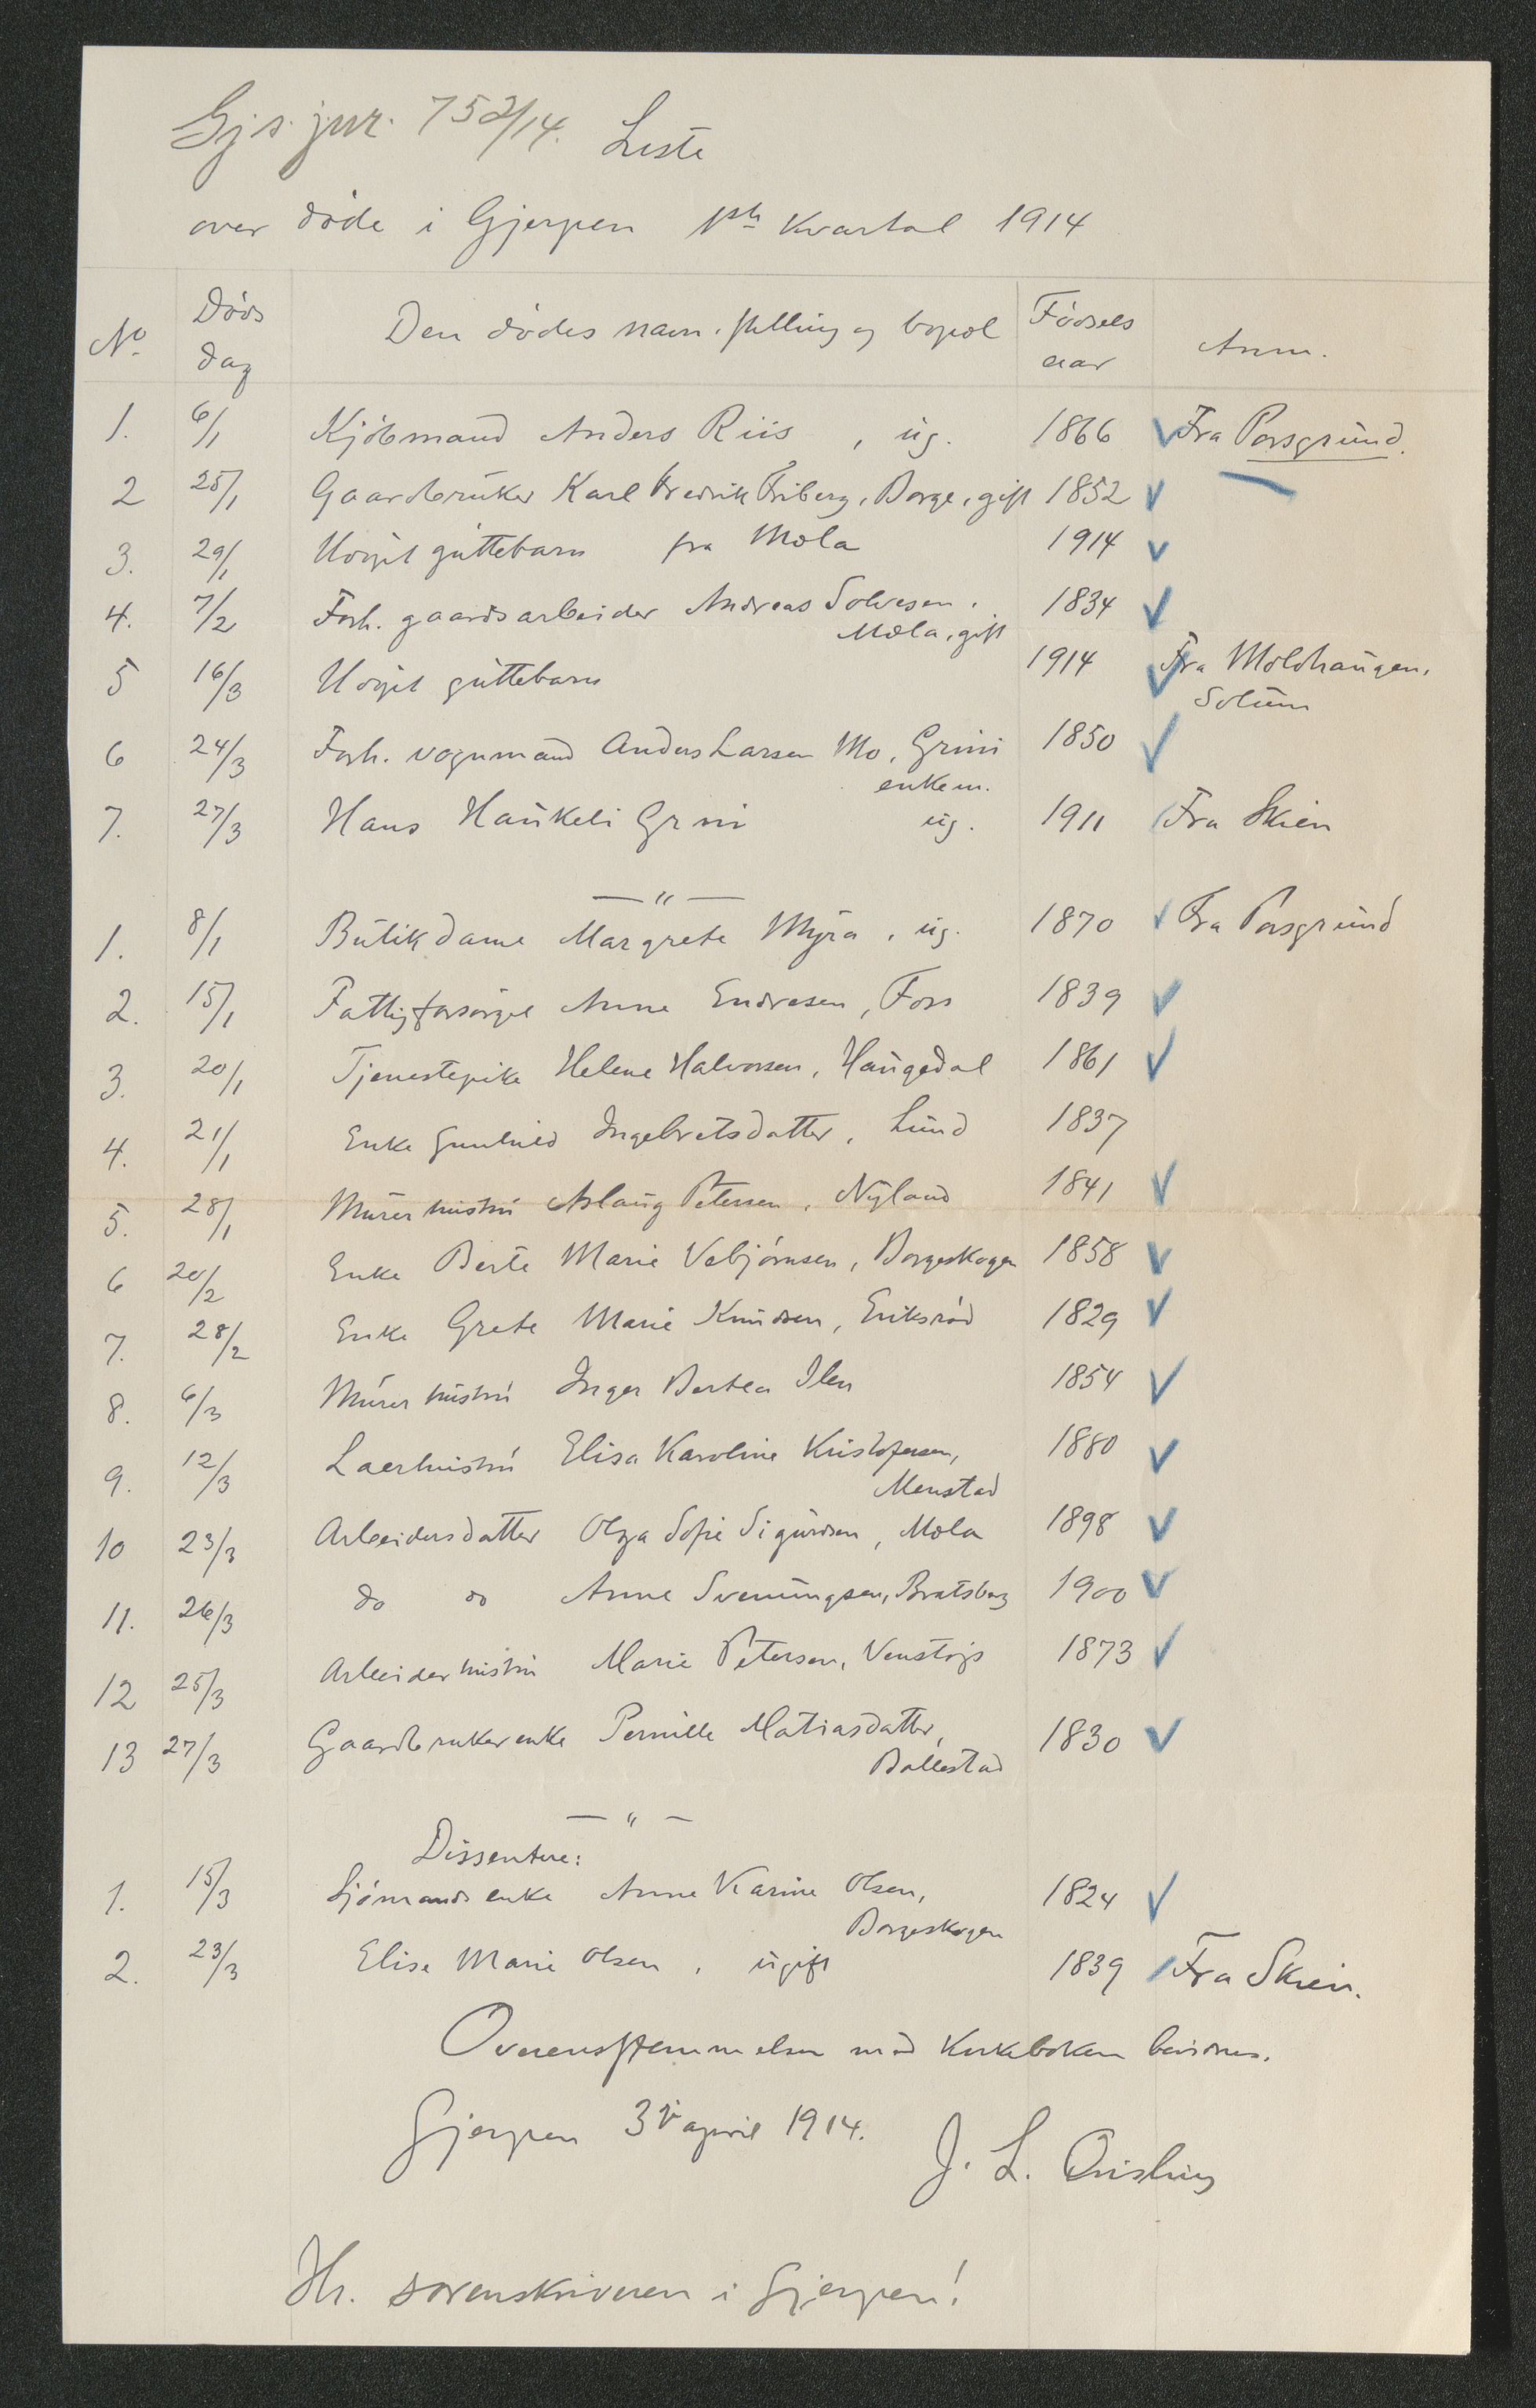 Gjs. jnr. 752/14. Liste
over døde i Gjerpen 1ste Kvartal 1914
No. Døds dag Den dødes navn, stilling og bopæl Fødsels aar Anm.
1. 6/1 Kjøbmand Anders Riis, ug. 1866 Fra Porsgrund.
2 25/1 Gaardbruker Karl Fredrik Friberg, Borge, gift 1852
3. 29/1 Uægte guttebarn fra Mæla 1914
4. 7/2 Forh. gaardsarbeider Andreas Solvesen,
Mæla, gift 1834
5 16/3 Uægte guttebarn 1914 Fra Moldhaugen,
Solum
6 24/3 Forh. vognmand Anders Larsen Mo, Grini
enkem. 1850
7. 27/3 Hans Haukeli Grini ug. 1911 Fra Skien
— " —
1. 8/1 Butikdame Margrete Myra, ug. 1870 Fra Porsgrund
2. 15/1 Fattigforsørget Anne Endresen, Foss 1839
3. 20/1 Tjenestepike Helene Halvorsen, Haugedal 1861
4. 21/1 Enke Gunhild Ingebretsdatter, Lund 1837
5. 28/1 Murerhustru Aslaug Petersen, Nyland 1841
6 20/2 Enke Berte Marie Vebjørnsen, Borgeskogen 1858
7. 28/2 Enke Grete Marie Knudsen, Eriksrød 1829
8. 6/3 Murerhustru Inger Bertea Ilen 1854
9. 12/3 Laerhustru Elisa Karoline Kristofersen,
Menstad 1880
10 23/3 Arbeidersdatter Olga Sofie Sigurdsen, Mæla 1898
11. 26/3 do do Anne Sveningsen, Bratsberg 1900
12 25/3 Arbeiderhustru Marie Petersen, Venstøp 1873
13 27/3 Gaardbrukerenke Pernille Matiasdatter,
Ballestad 1830
— " —
Dissentere:
1. 15/3 Sjømandsenke Anne Karine Olsen,
Borgeskogen 1824
2. 23/3 Elise Marie Olsen, ugift 1839 Fra Skien.
Overensstemmelsen med Kirkeboken bevidnes.
Gjerpen 3 april 1914. J. L. Qvisling
Hr. sorenskriveren i Gjerpen!